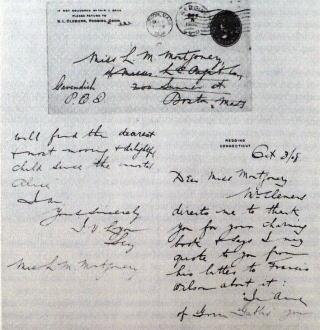 IF NOT DELIVERED WITHIN 5 DAYS
PLEASE RETURN TO
S. L. CLEMENS, REDDING, CONN.
Miss L M Montgomery
200 Summer St
Cavendish
P. E. I
Boston, Mass
will find the dearest
& most moving & delightful
child since the immortal
Alice
I am
Yours Sincerely
Miss L. M. Montgomery
REDDING
CONNECTICUT
Oct 3/08
Dear Miss Montgomery
Mr Clemens
directs me to thank
you for your charming
book & says I may
quote to you from
his letter to Francis
Wilson about it:
"In Anne
of Green Gables you